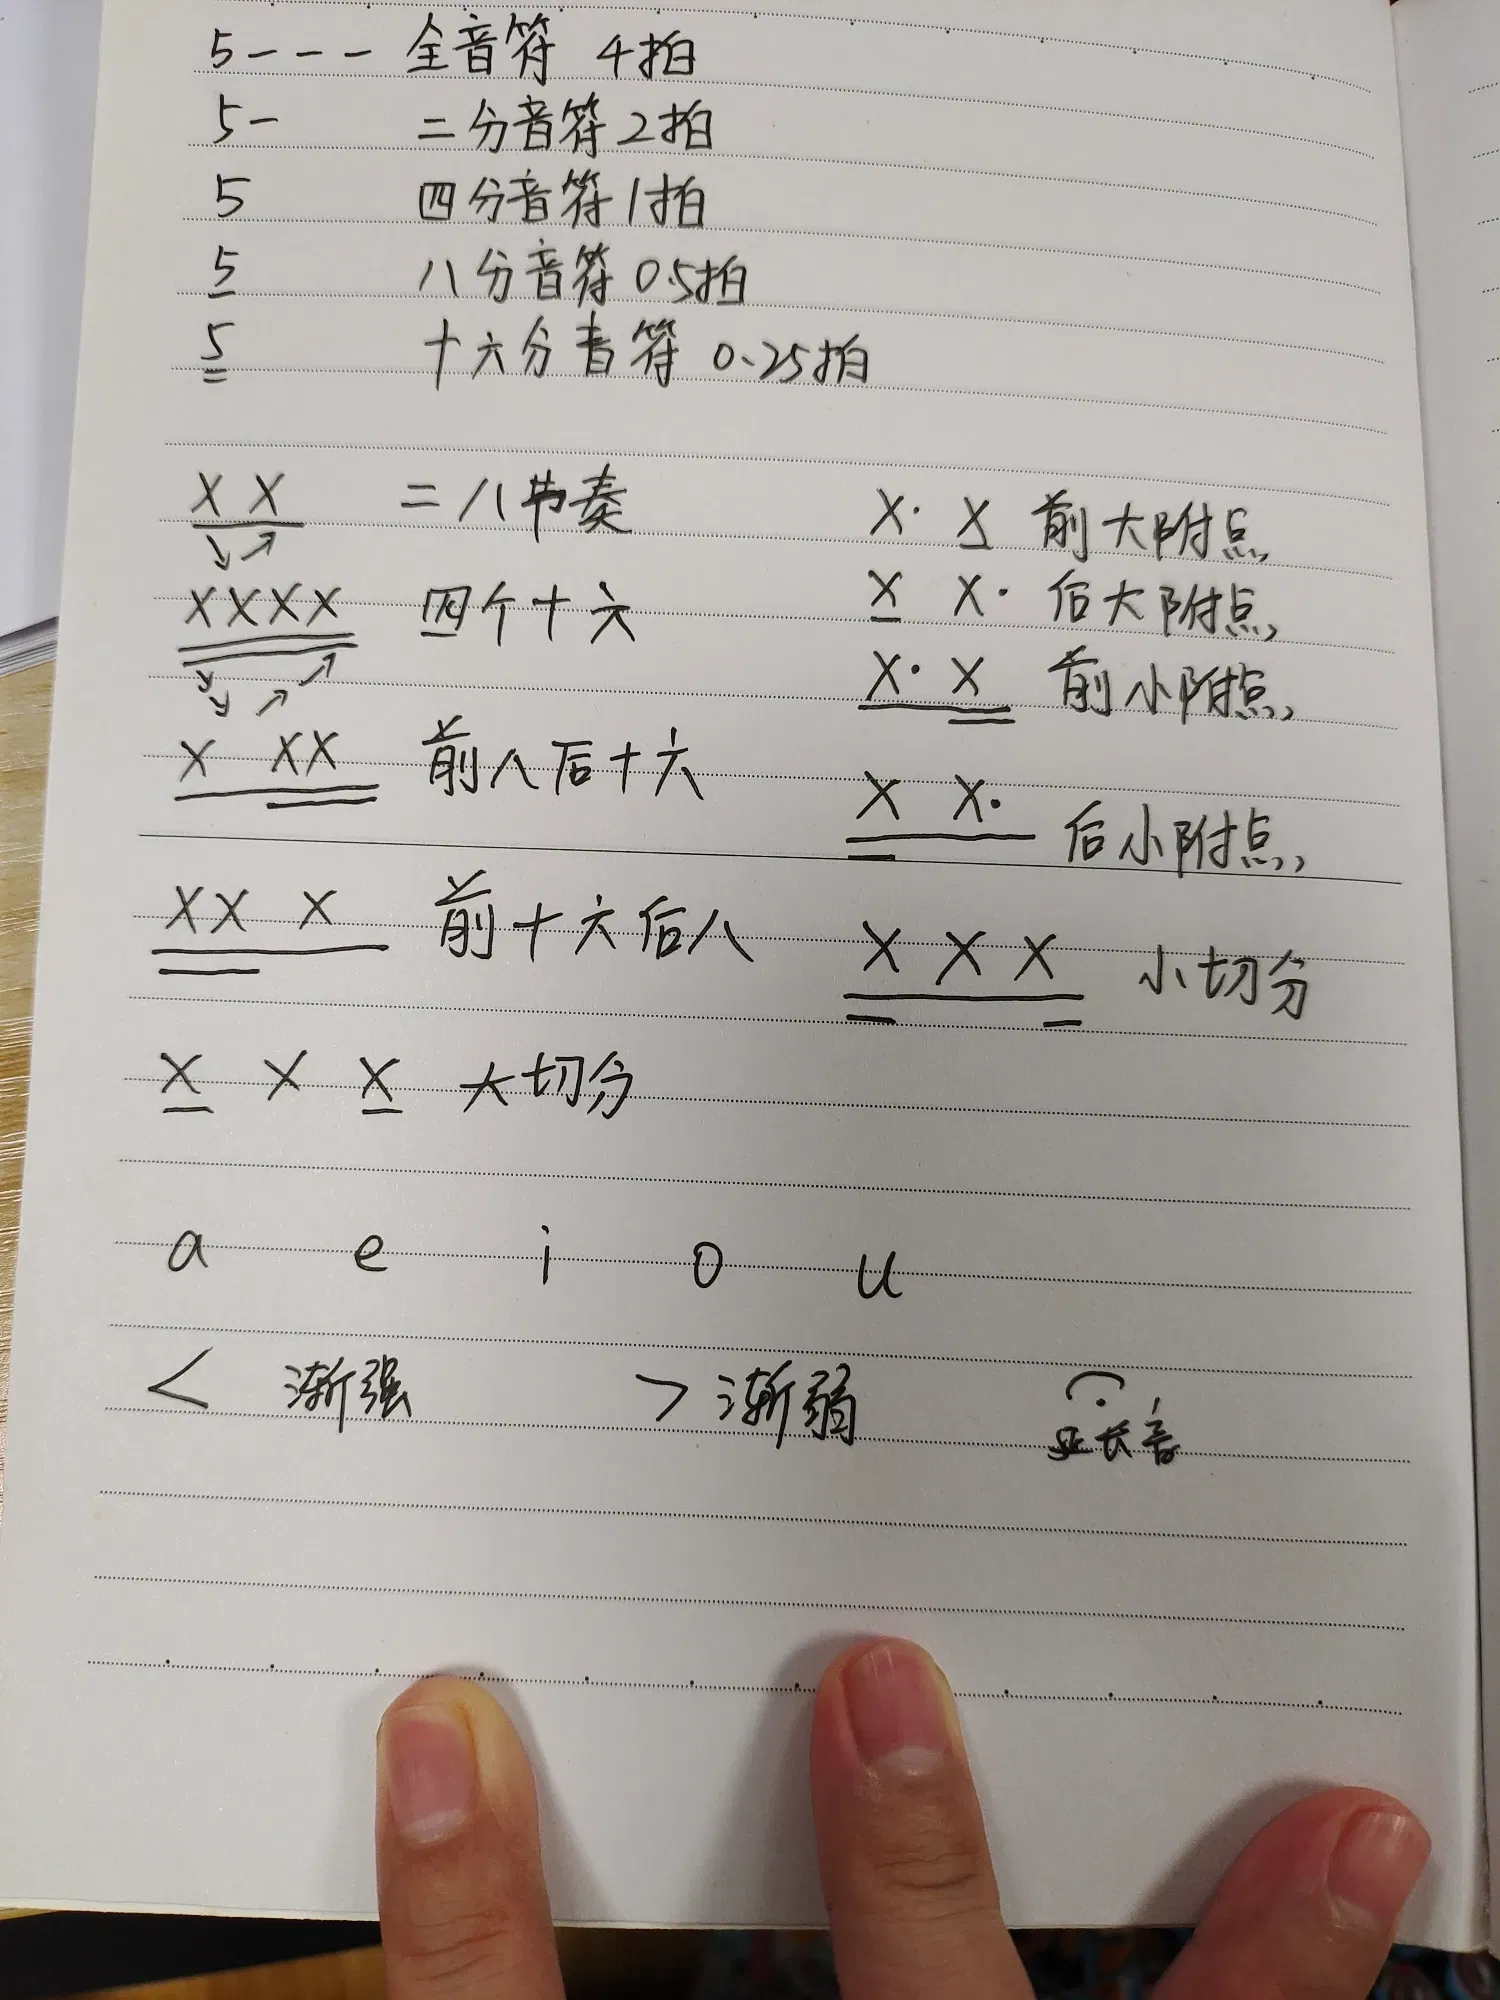 5 - - - 全音符 4拍
5 - 二分音符 2拍
5 四分音符 1拍
5 八分音符 0.5拍
5 十六分音符 0.25拍
X X 二八节奏 X· X 前大附点
XXXX 四个十六 X X· 后大附点
X· X 前小附点
X XX 前八后十六
X X· 后小附点
XX X 前十六后八
X X X 小切分
X X X 大切分
a e i o u
< 渐强 > 渐弱
延长音